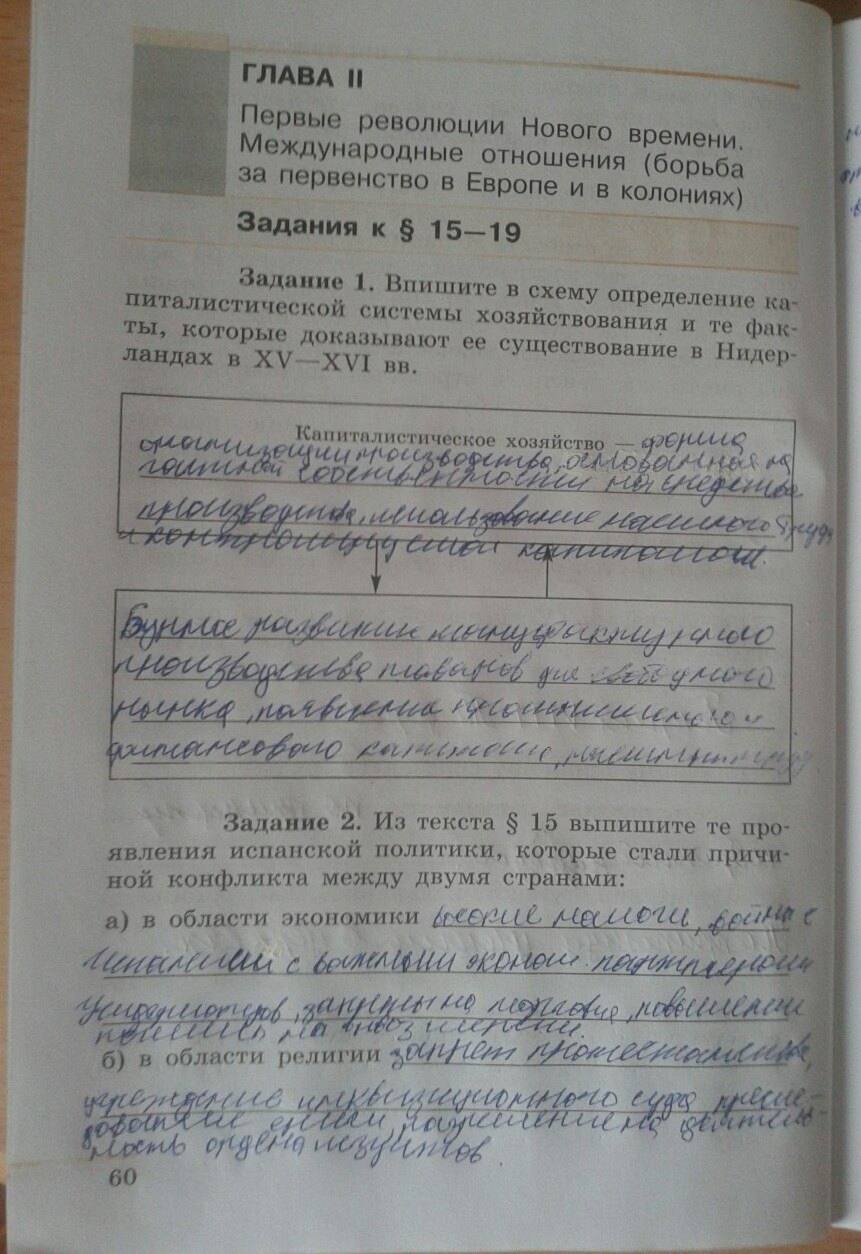 ГЛАВА II
Первые революции Нового времени.
Международные отношения (борьба
за первенство в Европе и в колониях)
Задания к § 15—19
Задание 1. Впишите в схему определение ка-
питалистической системы хозяйствования и те фак-
ты, которые доказывают ее существование в Нидер-
ландах в XV—XVI вв.
Капиталистическое хозяйство — форма
организации производства, основанная на
частной собственности на средства
производства, использование наемного труда
и контролируемой капиталом.
Бурное развитие мануфактурного
производства товаров для свободного
рынка, появление промышленного и
финансового капитала,
Задание 2. Из текста § 15 выпишите те про-
явления испанской политики, которые стали причи-
ной конфликта между двумя странами:
а) в области экономики высокие налоги, войны с
Испании с важными эконом. партнерами
Нидерландов, запреты на торговлю, повышение
пошлины на ввоз шерсти.
б) в области религии запрет протестантства,
учреждение инквизиционного суда, пресле-
дование, разрешение на деятель-
ность ордена иезуитов
60